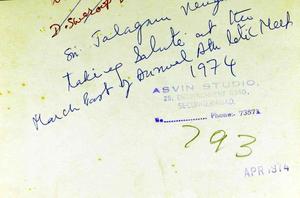 D. Swaroop
Sri Jalagam Veng
taking Salute at the
March Past of Annual Athletic Meet
1974
ASVIN STUDIO,
SECUNDERABAD,
No. Phone: 73571
793
APR 1974